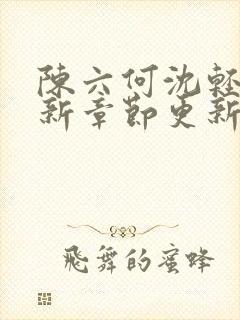 陳六何沈輕
新章節更新
飛舞的蜜蜂